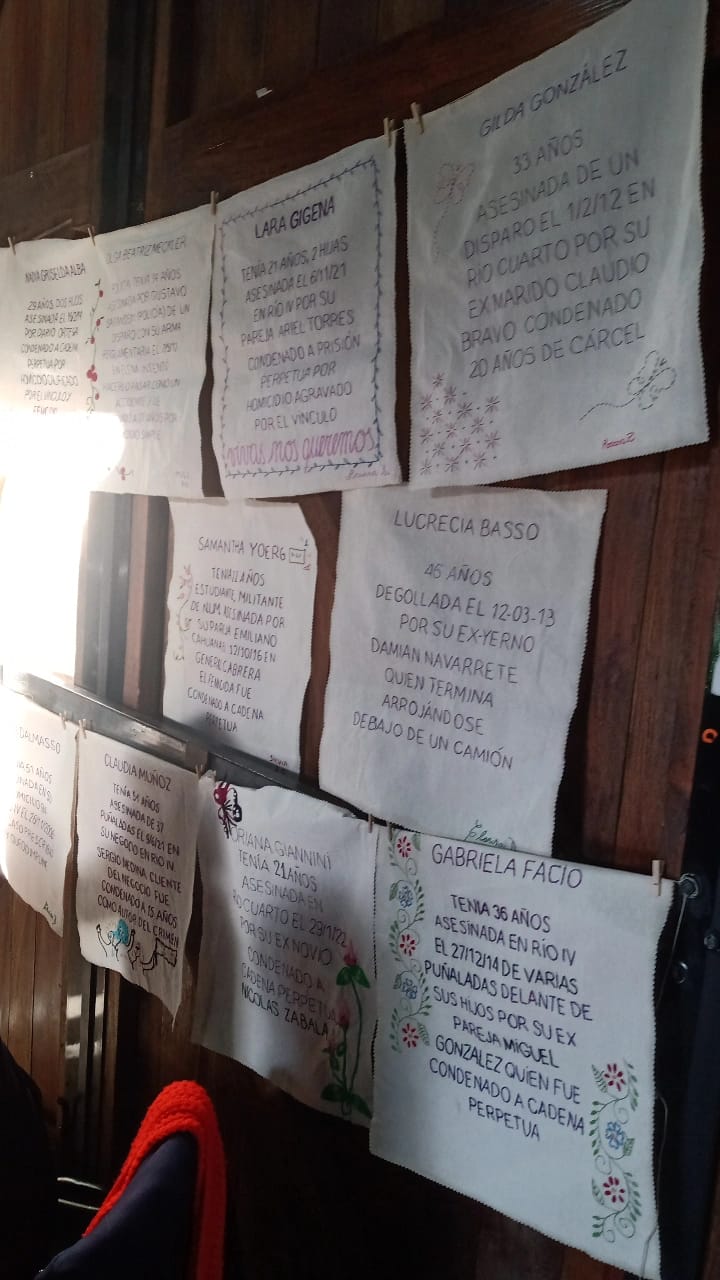 NADIA GRISELDA ALBA
29 AÑOS, DOS HIJOS
POR DARÍO ORTEGA
CONDENADO A CADENA
PERPETUA POR
HOMICIDIO CALIFICADO
POR EL VÍNCULO Y
OLGA BEATRIZ
POLICÍA) DE UN
DISPARO CON SU ARMA
REGLAMENTARIA EL
HACERLO PASAR COMO UN
LARA GIGENA
TENÍA 21 AÑOS, 2 HIJAS
ASESINADA EL 6/11/21
EN RÍO IV POR SU
PAREJA ARIEL TORRES
CONDENADO A PRISIÓN
PERPETUA POR
HOMICIDIO AGRAVADO
POR EL VÍNCULO
vivas nos queremos
GILDA GONZÁLEZ
33 AÑOS
ASESINADA DE UN
DISPARO EL 1/2/12 EN
RÍO CUARTO POR SU
EX MARIDO CLAUDIO
BRAVO CONDENADO
20 AÑOS DE CÁRCEL
SAMANTHA YOERG
TENÍA 22 AÑOS
ESTUDIANTE, MILITANTE
DE NUM. ASESINADA POR
SU PAREJA EMILIANO
12/10/16 EN
GENERAL CABRERA
EL FEMICIDA FUE
CONDENADO A CADENA
PERPETUA
LUCRECIA BASSO
46 AÑOS
DEGOLLADA EL 12-03-13
POR SU EX-YERNO
DAMIAN NAVARRETE
QUIEN TERMINA
ARROJÁNDOSE
DEBAJO DE UN CAMIÓN
DALMASSO
51 AÑOS
CLAUDIA MUÑOZ
TENÍA 51 AÑOS
ASESINADA DE 37
PUÑALADAS EL 9/6/21 EN
SU NEGOCIO EN RÍO IV.
SERGIO MEDINA CLIENTE
DEL NEGOCIO FUE
CONDENADO A 15 AÑOS
COMO AUTOR DEL CRIMEN
ORIANA GIANNINI
TENÍA 21 AÑOS
ASESINADA EN
RÍO CUARTO EL 29/1/22
POR SU EX NOVIO
CONDENADO A
CADENA PERPETUA
NICOLAS ZABALA
GABRIELA FACIO
TENIA 36 AÑOS
ASESINADA EN RÍO IV
EL 27/12/14 DE VARIAS
PUÑALADAS DELANTE DE
SUS HIJOS POR SU EX
PAREJA MIGUEL
GONZALEZ QUIEN FUE
CONDENADO A CADENA
PERPETUA